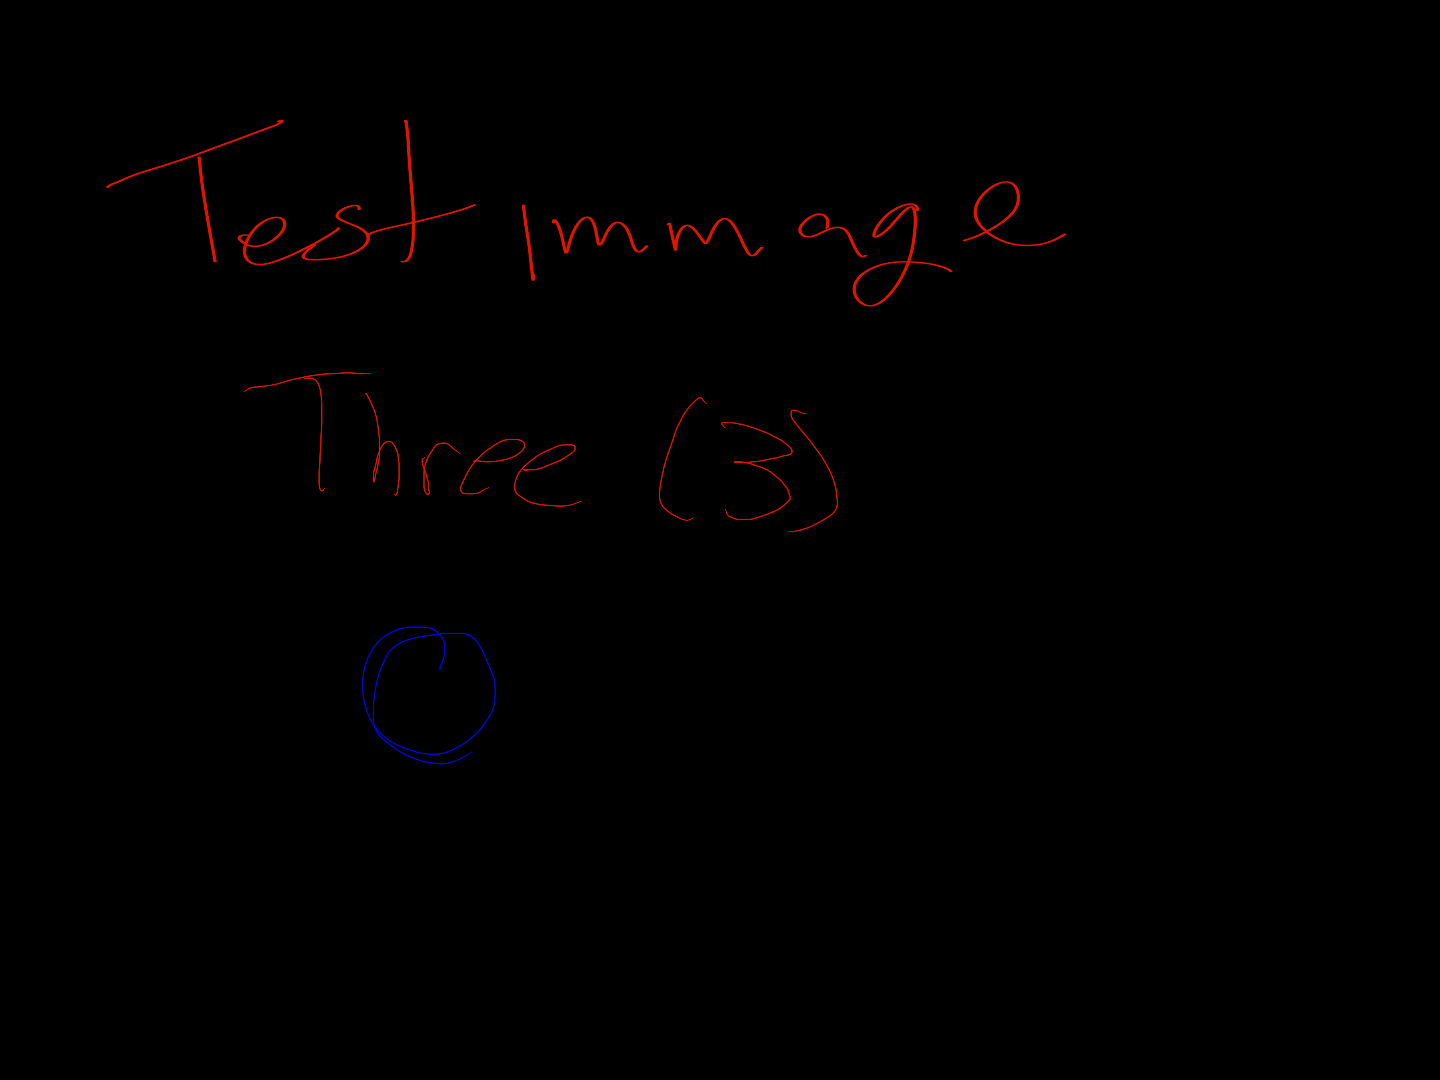 Test immage
Three (3)